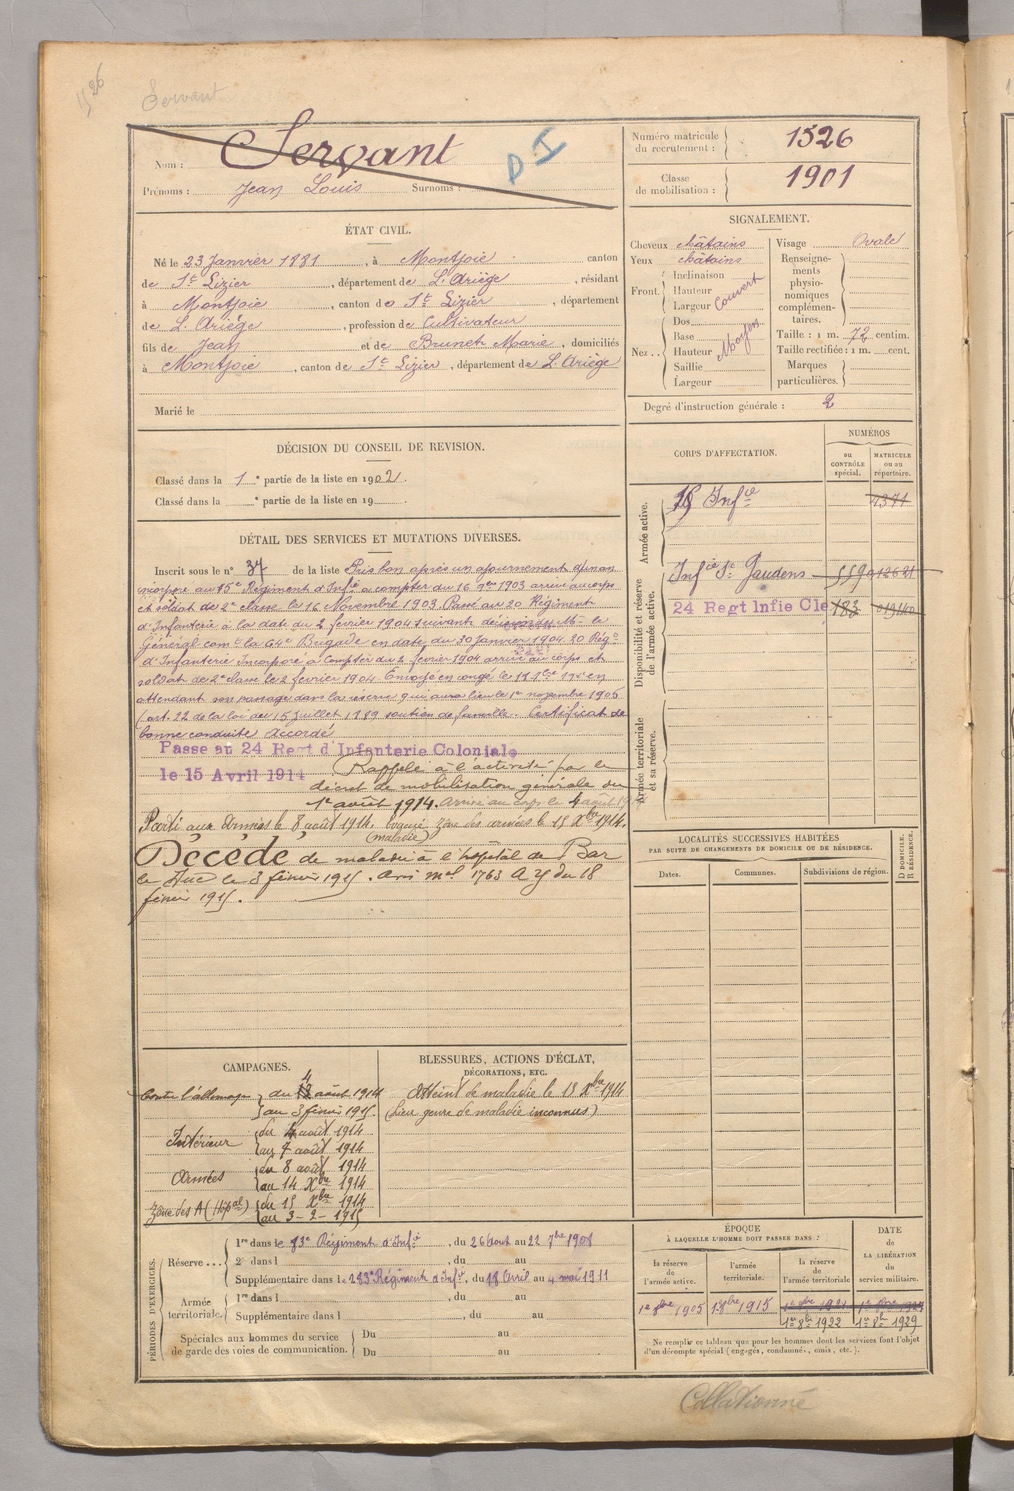 1526
Servant
Nom : Servant
D I
Prénoms : Jean Louis Surnoms :
Numéro matricule du recrutement : 1526
Classe de mobilisation : 1901
ÉTAT CIVIL.
Né le 23 Janvier 1881, à Montjoie canton
de St Lizier, département de L'Ariège, résidant
à Montjoie, canton de St Lizier, département
de L'Ariège, profession de Cultivateur
fils de Jean et de Brunet Marie, domiciliés
à Montjoie, canton de St Lizier, département de L'Ariège
Marié le
SIGNALEMENT.
Cheveux châtains
Yeux châtains
Front. Inclinaison
Hauteur
Largeur
Couvert
Nez.. Dos
Base
Hauteur
Saillie
Largeur
Moyen
Visage Ovale
Renseignements physionomiques complémentaires.
Taille : 1 m. 72 centim.
Taille rectifiée : 1 m. cent.
Marques particulières.
Degré d'instruction générale : 2
DÉCISION DU CONSEIL DE REVISION.
Classé dans la 1e partie de la liste en 1902.
Classé dans la e partie de la liste en 19
DÉTAIL DES SERVICES ET MUTATIONS DIVERSES.
Inscrit sous le n° 37 de la liste Pris bon après un ajournement d'un an
incorporé au 15e Régiment d'Infie à compter du 16 9bre 1903 arrivé au corps
et soldat de 2e classe le 16 Novembre 1903. Passé au 20 Régiment
d'Infanterie à la date du 2 février 1904 suivant Mr le
Général comt la 64e Brigade en date du 30 Janvier 1904. 20 Régt
d'Infanterie Incorporé à compter du 2 février 1904 arrivé au corps et
soldat de 2e classe le 2 février 1904. Envoyé en congé le en
attendant son passage dans la réserve qui aura lieu le 1er novembre 1905
(art. 22 de la loi du 15 Juillet 1889 soutien de famille. Certificat de
bonne conduite Accordé
Passé au 24 Regt d'Infanterie Coloniale
le 15 Avril 1914
Rappelé à l'activité par le
décret de mobilisation générale du
1er août 1914. Arrivé au corps le 4 août 1914
Parti aux Armées le 8 août 1914. Evacué zône des armées le 15 Xbre 1914.
(maladie)
Décédé de maladie à l'hôpital de Bar
le Duc le 3 février 1915. Avis mel 1763 A y du 18
février 1915.
CORPS D'AFFECTATION.
NUMÉROS
au CONTRÔLE spécial.
MATRICULE ou au répertoire.
Armée active.
15 Infie 4371
Disponibilité et réserve de l'armée active.
Infie St Gaudens 559 012621
24 Regt Infie Cle 183 019140
Armée territoriale et sa réserve.
LOCALITÉS SUCCESSIVES HABITÉES
PAR SUITE DE CHANGEMENTS DE DOMICILE OU DE RÉSIDENCE.
Dates.
Communes.
Subdivisions de région.
D DOMICILE.
R RÉSIDENCE.
CAMPAGNES.
Contre l'allemagne du 4 août 1914
au 3 février 1915.
Intérieur du 4 août 1914
au 7 août 1914
Armées du 8 août 1914
au 14 Xbre 1914
Zône des A (Hôpal) du 15 Xbre 1914
au 3-2-1915
BLESSURES, ACTIONS D'ÉCLAT,
DÉCORATIONS, ETC.
Atteint de maladie le 15 Xbre 1914
(lieu genre de maladie inconnus)
PÉRIODES D'EXERCICES.
Réserve ...
1re dans le 83e Régiment d'Infie, du 26 Aout au 22 7bre 1908
2e dans l , du au
Supplémentaire dans le 283e Régiment d'Infie, du 18 Avril au 4 mai 1911
Armée territoriale.
1re dans l , du au
Supplémentaire dans l , du au
Spéciales aux hommes du service de garde des voies de communication.
Du au
Du au
ÉPOQUE
À LAQUELLE L'HOMME DOIT PASSER DANS :
la réserve de l'armée active.
l'armée territoriale.
la réserve de l'armée territoriale
DATE de LA LIBÉRATION du service militaire.
1er 9bre 1905
1er 8bre 1915
1er 8bre 1921
1er 8bre 1922
1er 8bre 1929
Ne remplir ce tableau que pour les hommes dont les services font l'objet
d'un décompte spécial (engagés, condamnés, omis, etc.).
Collationné